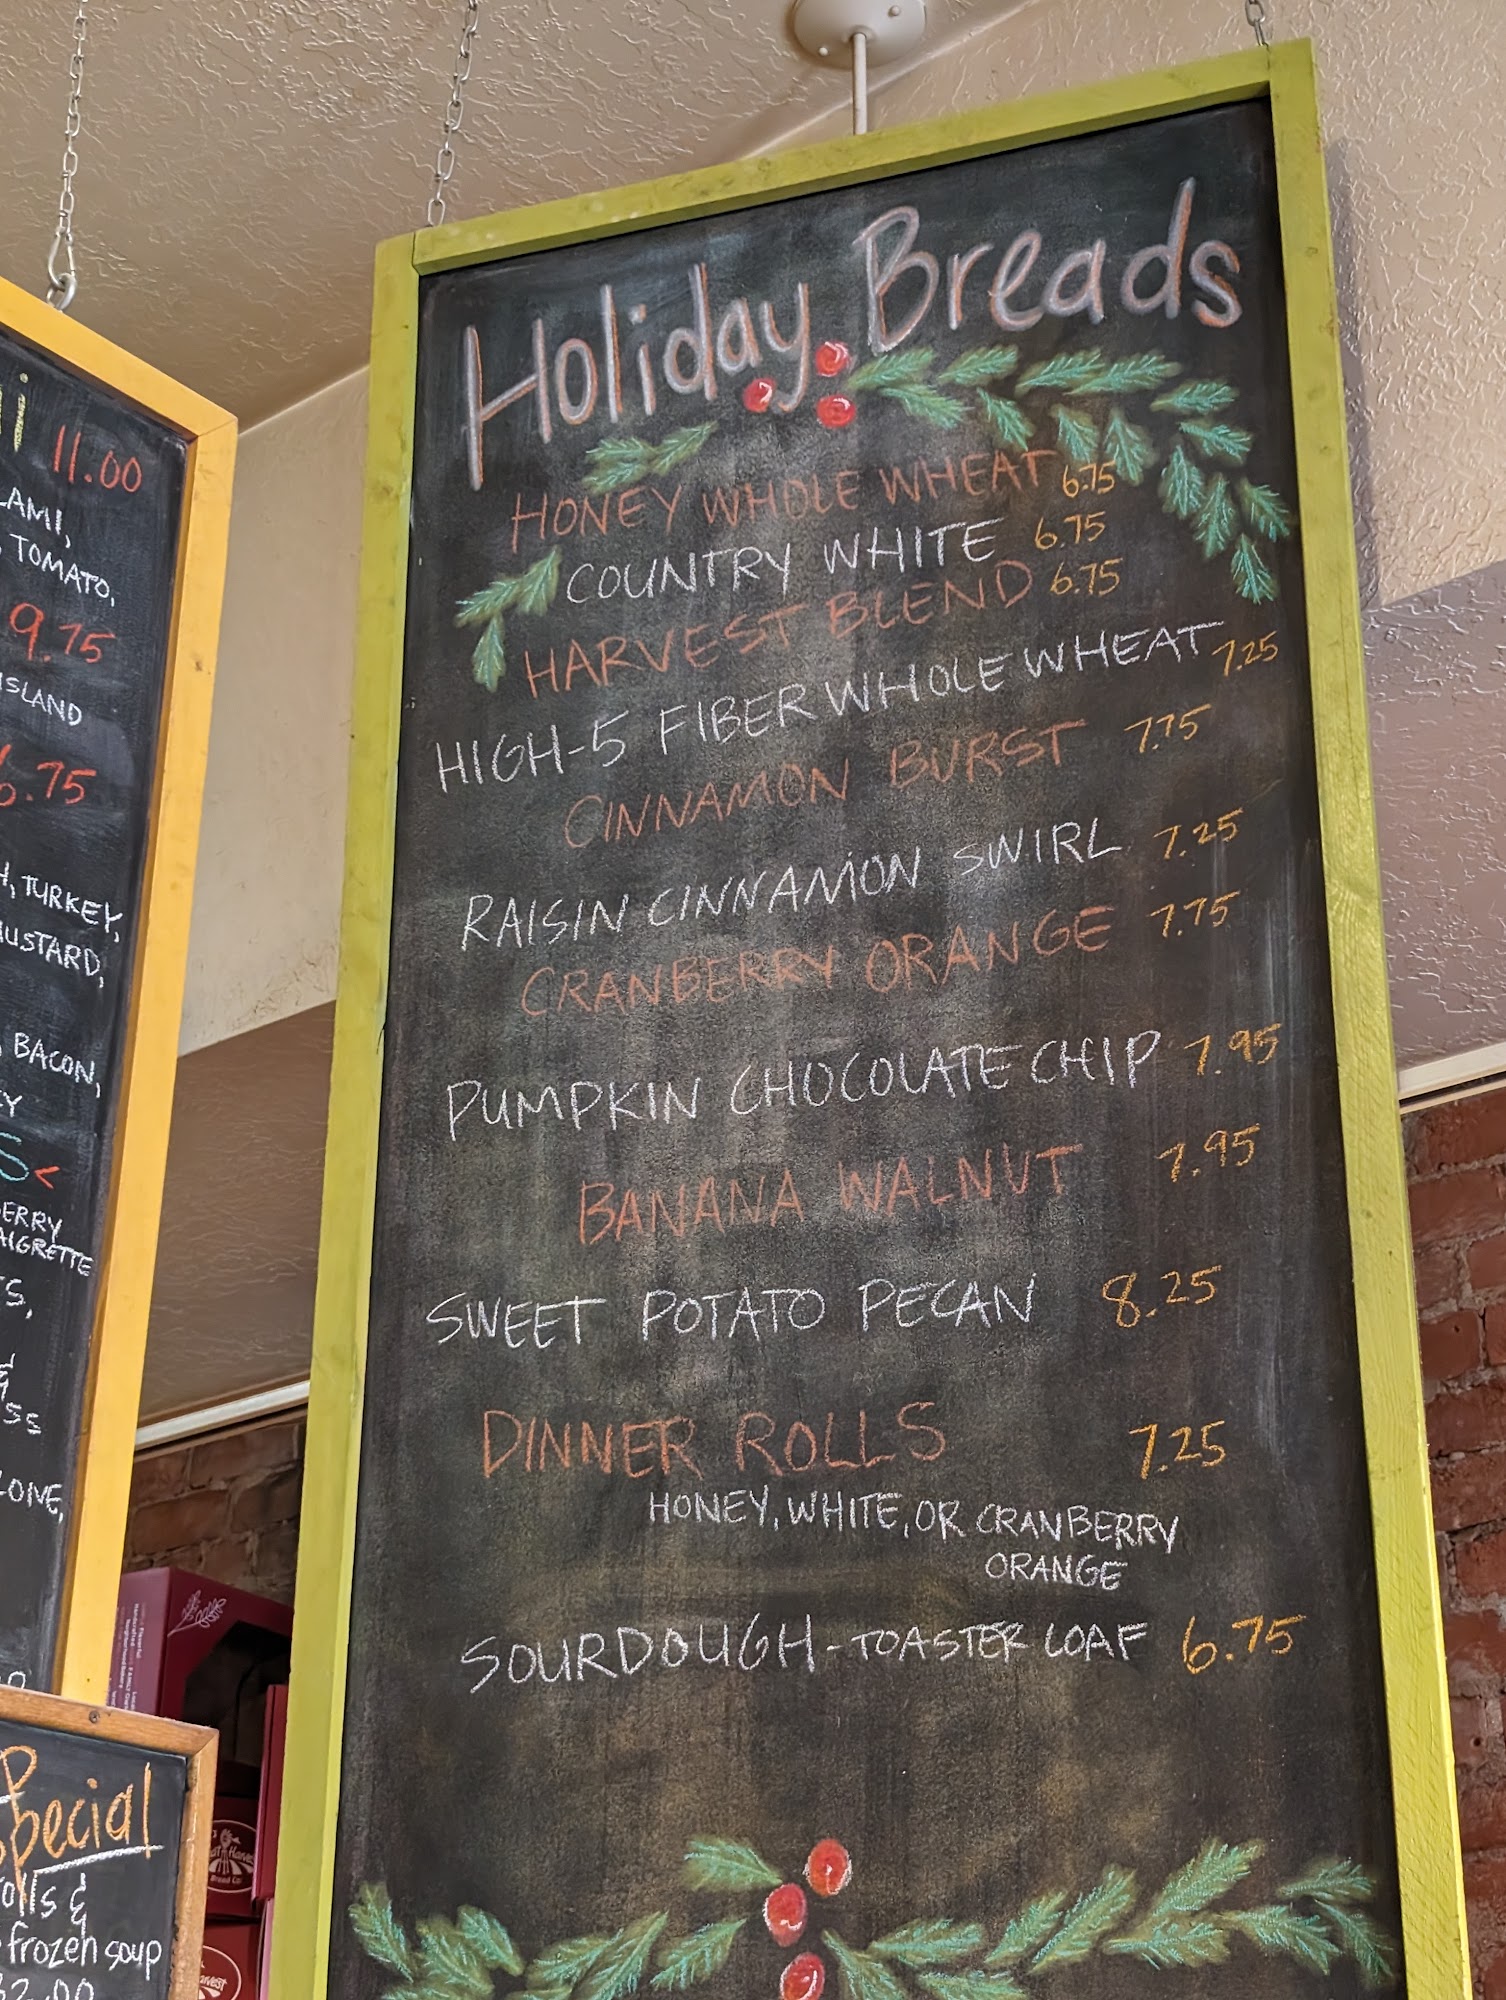 Holiday Breads
HONEY WHOLE WHEAT 6.75
COUNTRY WHITE 6.75
HARVEST BLEND 6.75
HIGH-5 FIBER WHOLE WHEAT 7.25
CINNAMON BURST 7.75
RAISIN CINNAMON SWIRL 7.25
CRANBERRY ORANGE 7.75
PUMPKIN CHOCOLATE CHIP 7.95
BANANA WALNUT 7.95
SWEET POTATO PECAN 8.25
DINNER ROLLS 7.25
HONEY, WHITE, OR CRANBERRY
ORANGE
SOURDOUGH-TOASTER LOAF 6.75
11.00
LAMI,
TOMATO,
9.75
ISLAND
6.75
H, TURKEY,
MUSTARD,
BACON,
EY
S<
ERRY
AIGRETTE
TS,
&
SS
LOIVE,
Special
olls &
frozen soup
32.00
Harvest
Bread Co.